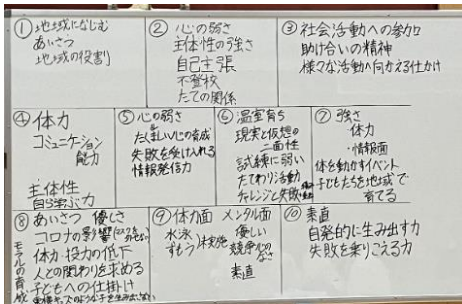 ① 地域になじむ
あいさつ
地域の役割
② 心の弱さ
主体性の強さ
自己主張
不登校
たての関係
③ 社会活動への参加
助け合いの精神
様々な活動へ向かえる仕かけ
④ 体力
コミュニケーション
能力
主体性
自ら学ぶ力
⑤ 心の弱さ
たくましい心の育成
失敗を受け入れる
情報発信力
⑥ 温室育ち
現実と仮想の
二面性
試練に弱い
たてわり活動
チャレンジと失敗
⑦ 強さ
体力
・情報面
体を動かすイベント
子どもたちを地域で
育てる
⑧ あいさつ 優しさ
コロナの影響
体力・投力の低下
人との関わりを求める
子どもへの仕掛け
モラルの育成
⑨ 体力面 メンタル面
水泳
すもう
未実施
優しい
競争心の
なさ
素直
⑩ 素直
自発的に生み出す力
失敗を乗りこえる力